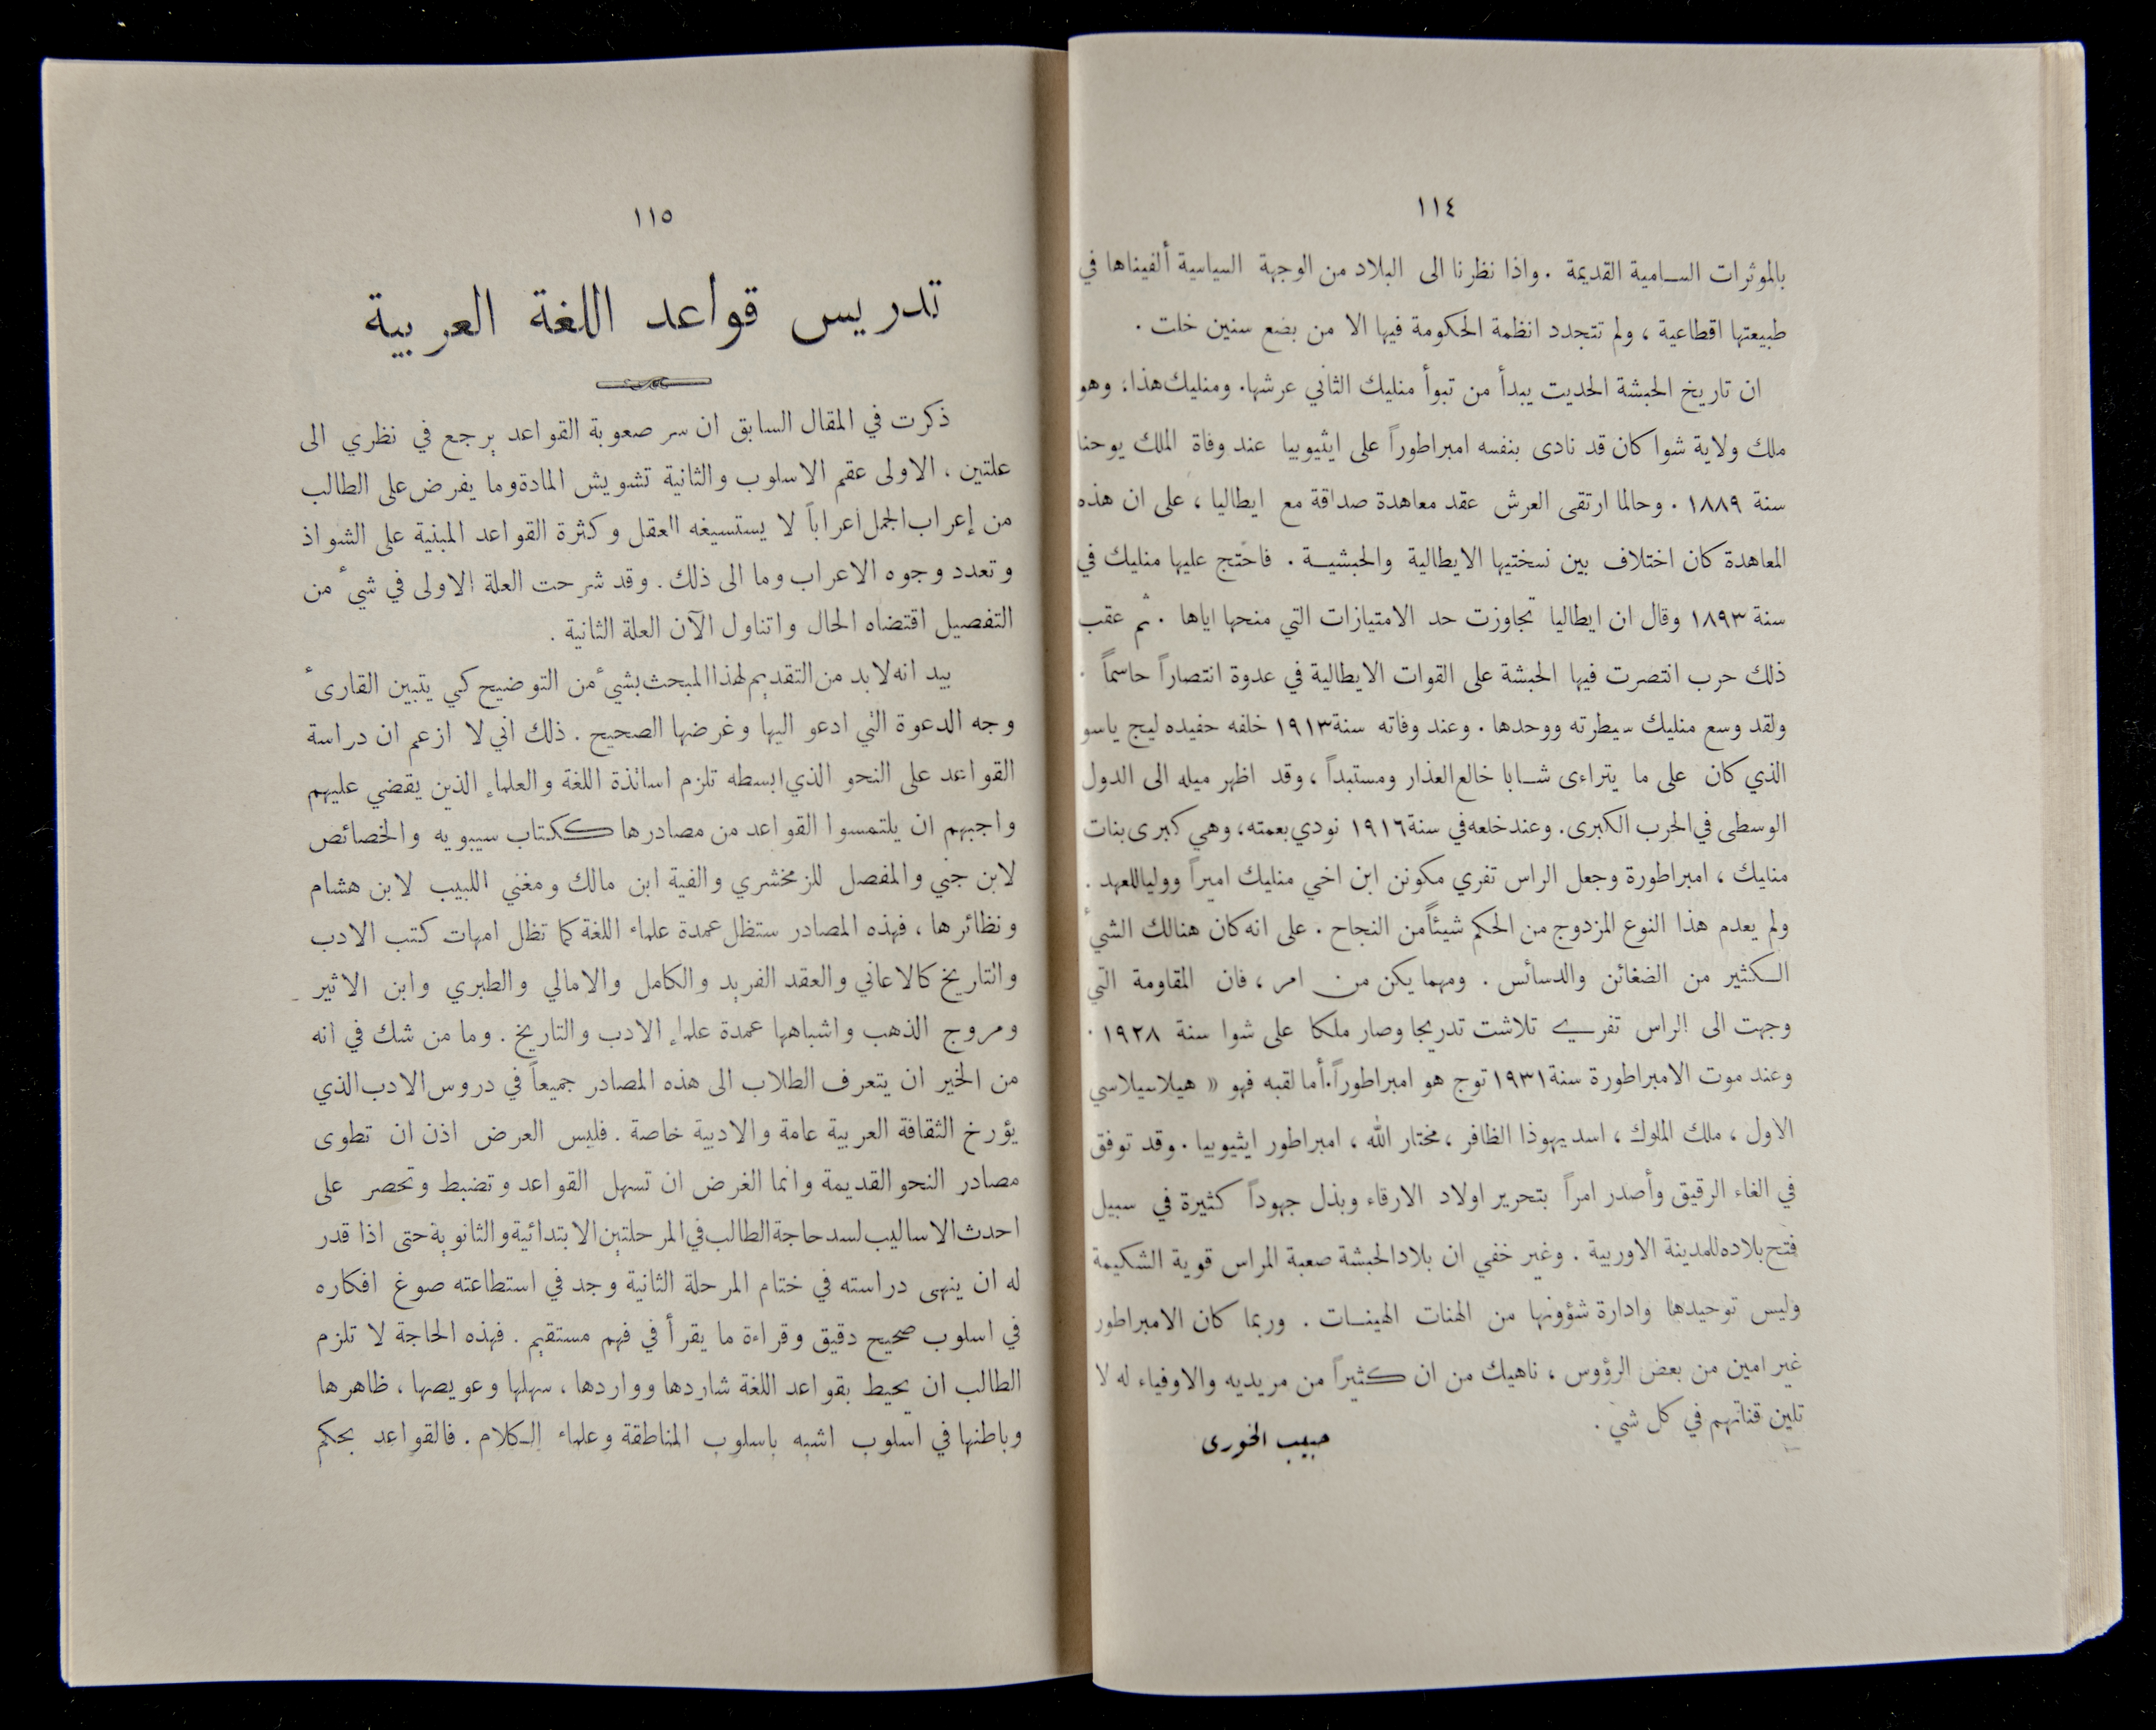 ١١٤
بالموثرات السامية القديمة . واذا نظرنا الى البلاد من الوجهة السياسية ألفيناها في
طبيعتها اقطاعية ، ولم تتجدد انظمة الحكومة فيها الا من بضع سنين خلت .
ان تاريخ الحبشة الحديت يبدأ من تبوأ منليك الثاني عرشها . ومنليك هذا ، وهو
ملك ولاية شوا كان قد نادى بنفسه امبراطوراً على ايثيوبيا عند وفاة الملك يوحنا
سنة ١٨٨٩ . وحالما ارتقى العرش عقد معاهدة صداقة مع ايطاليا ، على ان هذه
المعاهدة كان اختلاف بين نسختيها الايطالية والحبشية . فاحتج عليها منليك في
سنة ١٨٩٣ وقال ان ايطاليا تجاوزت حد الامتيازات التي منحها اياها . ثم عقب
ذلك حرب انتصرت فيها الحبشة على القوات الايطالية في عدوة انتصاراً حاسماً .
ولقد وسع منليك سيطرته ووحدها . وعند وفاته سنة ١٩١٣ خلفه حفيده ليج ياسو
الذي كان على ما يتراءى شابا خالع العذار ومستبداً ، وقد اظهر ميله الى الدول
الوسطى في الحرب الكبرى . وعند خلعه في سنة ١٩١٦ نودي بعمته ، وهي كبرى بنات
منليك ، امبراطورة وجعل الراس تفري مكونن ابن اخي منليك اميراً ووليا للعهد .
ولم يعدم هذا النوع المزدوج من الحكم شيئاً من النجاح . على انه كان هنالك الشيء
الكثير من الضغائن والدسائس . ومهما يكن من امر ، فان المقاومة التي
وجهت الى الراس تفري تلاشت تدريجا وصار ملكا على شوا سنة ١٩٢٨ .
وعند موت الامبراطورة سنة ١٩٣١ توج هو امبراطوراً . أما لقبه فهو « هيلاسيلاسي
الاول ، ملك الملوك ، اسد يهوذا الظافر ، مختار الله ، امبراطور ايثيوبيا . وقد توفق
في الغاء الرقيق وأصدر امراً بتحرير اولاد الارقاء وبذل جهوداً كثيرة في سبيل
فتح بلاده للمدينة الاوربية . وغير خفي ان بلاد الحبشة صعبة المراس قوية الشكيمة
وليس توحيدها وادارة شؤونها من الهنات الهينات . وربما كان الامبراطور
غير امين من بعض الرؤوس ، ناهيك من ان كثيراً من مريديه والاوفياء له لا
تلين قناتهم في كل شيء .
حبيب الخورى
١١٥
تدريس قواعد اللغة العربية
ذكرت في المقال السابق ان سر صعوبة القواعد يرجع في نظري الى
علتين ، الاولى عقم الاسلوب والثانية تشويش المادة وما يفرض على الطالب
من إعراب الجمل اعراباً لا يستسيغه العقل وكثرة القواعد المبنية على الشواذ
وتعدد وجوه الاعراب وما الى ذلك . وقد شرحت العلة الاولى في شيء من
التفصيل اقتضاه الحال واتناول الآن العلة الثانية .
بيد انه لا بد من التقديم لهذا المبحث بشيء من التوضيح كي يتبين القارىء
وجه الدعوة التي ادعو اليها وغرضها الصحيح . ذلك اني لا ازعم ان دراسة
القواعد على النحو الذي ابسطه تلزم اساتذة اللغة والعلماء الذين يقضي عليهم
واجبهم ان يلتمسوا القواعد من مصادرها ككتاب سيبويه والخصائص
لابن جني والمفصل للزمخشري والفية ابن مالك ومغني اللبيب لابن هشام
ونظائرها ، فهذه المصادر ستظل عمدة علماء اللغة كما تظل امهات كتب الادب
والتاريخ كالاغاني والعقد الفريد والكامل والامالي والطبري وابن الاثير
ومروج الذهب واشباهها عمدة علماء الادب والتاريخ . وما من شك في انه
من الخير ان يتعرف الطلاب الى هذه المصادر جميعاً في دروس الادب الذي
يؤرخ الثقافة العربية عامة والادبية خاصة . فليس العرض اذن ان تطوى
مصادر النحو القديمة وانما الغرض ان تسهل القواعد وتضبط وتحصر على
احدث الاساليب لسد حاجة الطالب في المرحلتين الابتدائية والثانوية حتى اذا قدر
له ان ينهى دراسته في ختام المرحلة الثانية وجد في استطاعته صوغ افكاره
في اسلوب صحيح دقيق وقراءة ما يقرأ في فهم مستقيم . فهذه الحاجة لا تلزم
الطالب ان يحيط بقواعد اللغة شاردها وواردها ، سهلها وعويصها ، ظاهرها
وباطنها في اسلوب اشبه باسلوب المناطقة وعلماء الكلام . فالقواعد بحكم